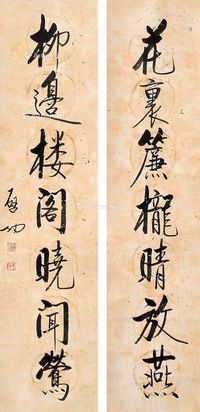 花裏簾櫳晴放燕
柳邊楼阁曉聞鶯
啟功